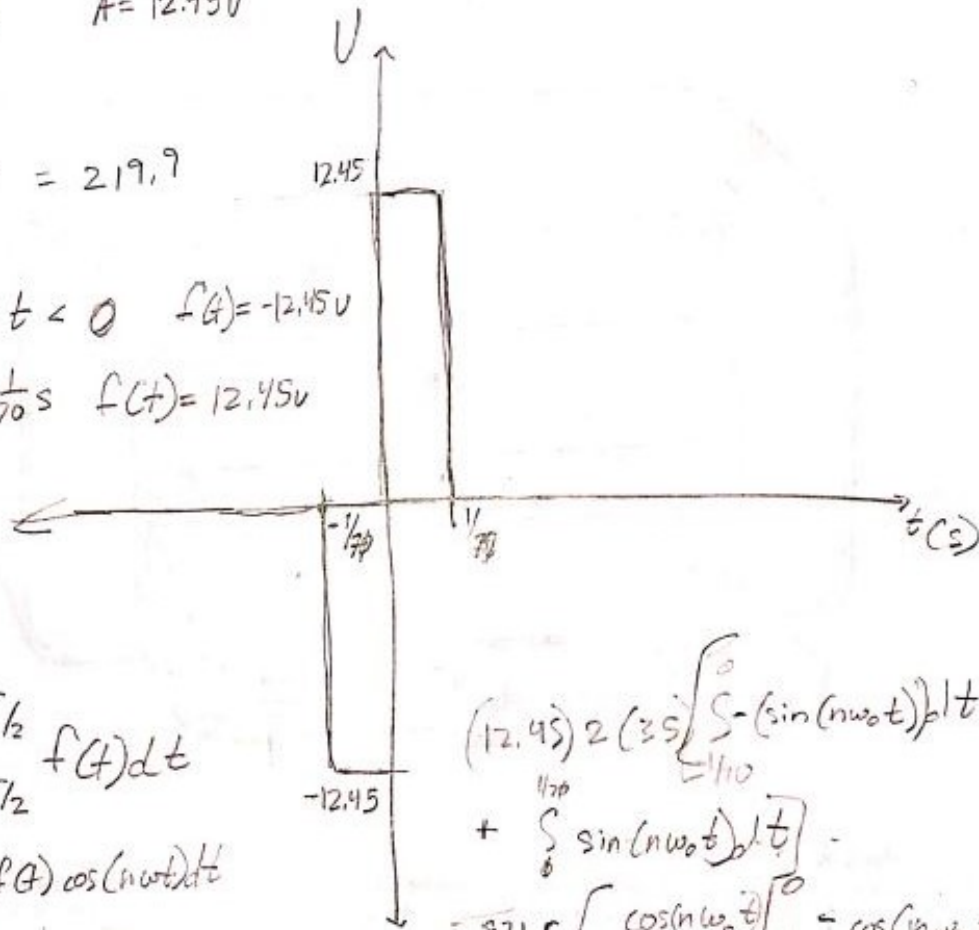 A = 12.45V
U
= 219.9
12.45
t < 0 f(t) = -12.45v
1/70 s f(t) = 12.45v
-1/70
1/70
t(s)
-12.45
T/2
f(t)dt
T/2
f(t) cos(nωt)dt
(12.45) 2 (35) [ ∫ -(sin(nω₀t))dt
0
-1/70
1/70
+ ∫ sin(nω₀t)dt]
0
cos(nω₀t) |⁰ - cos(